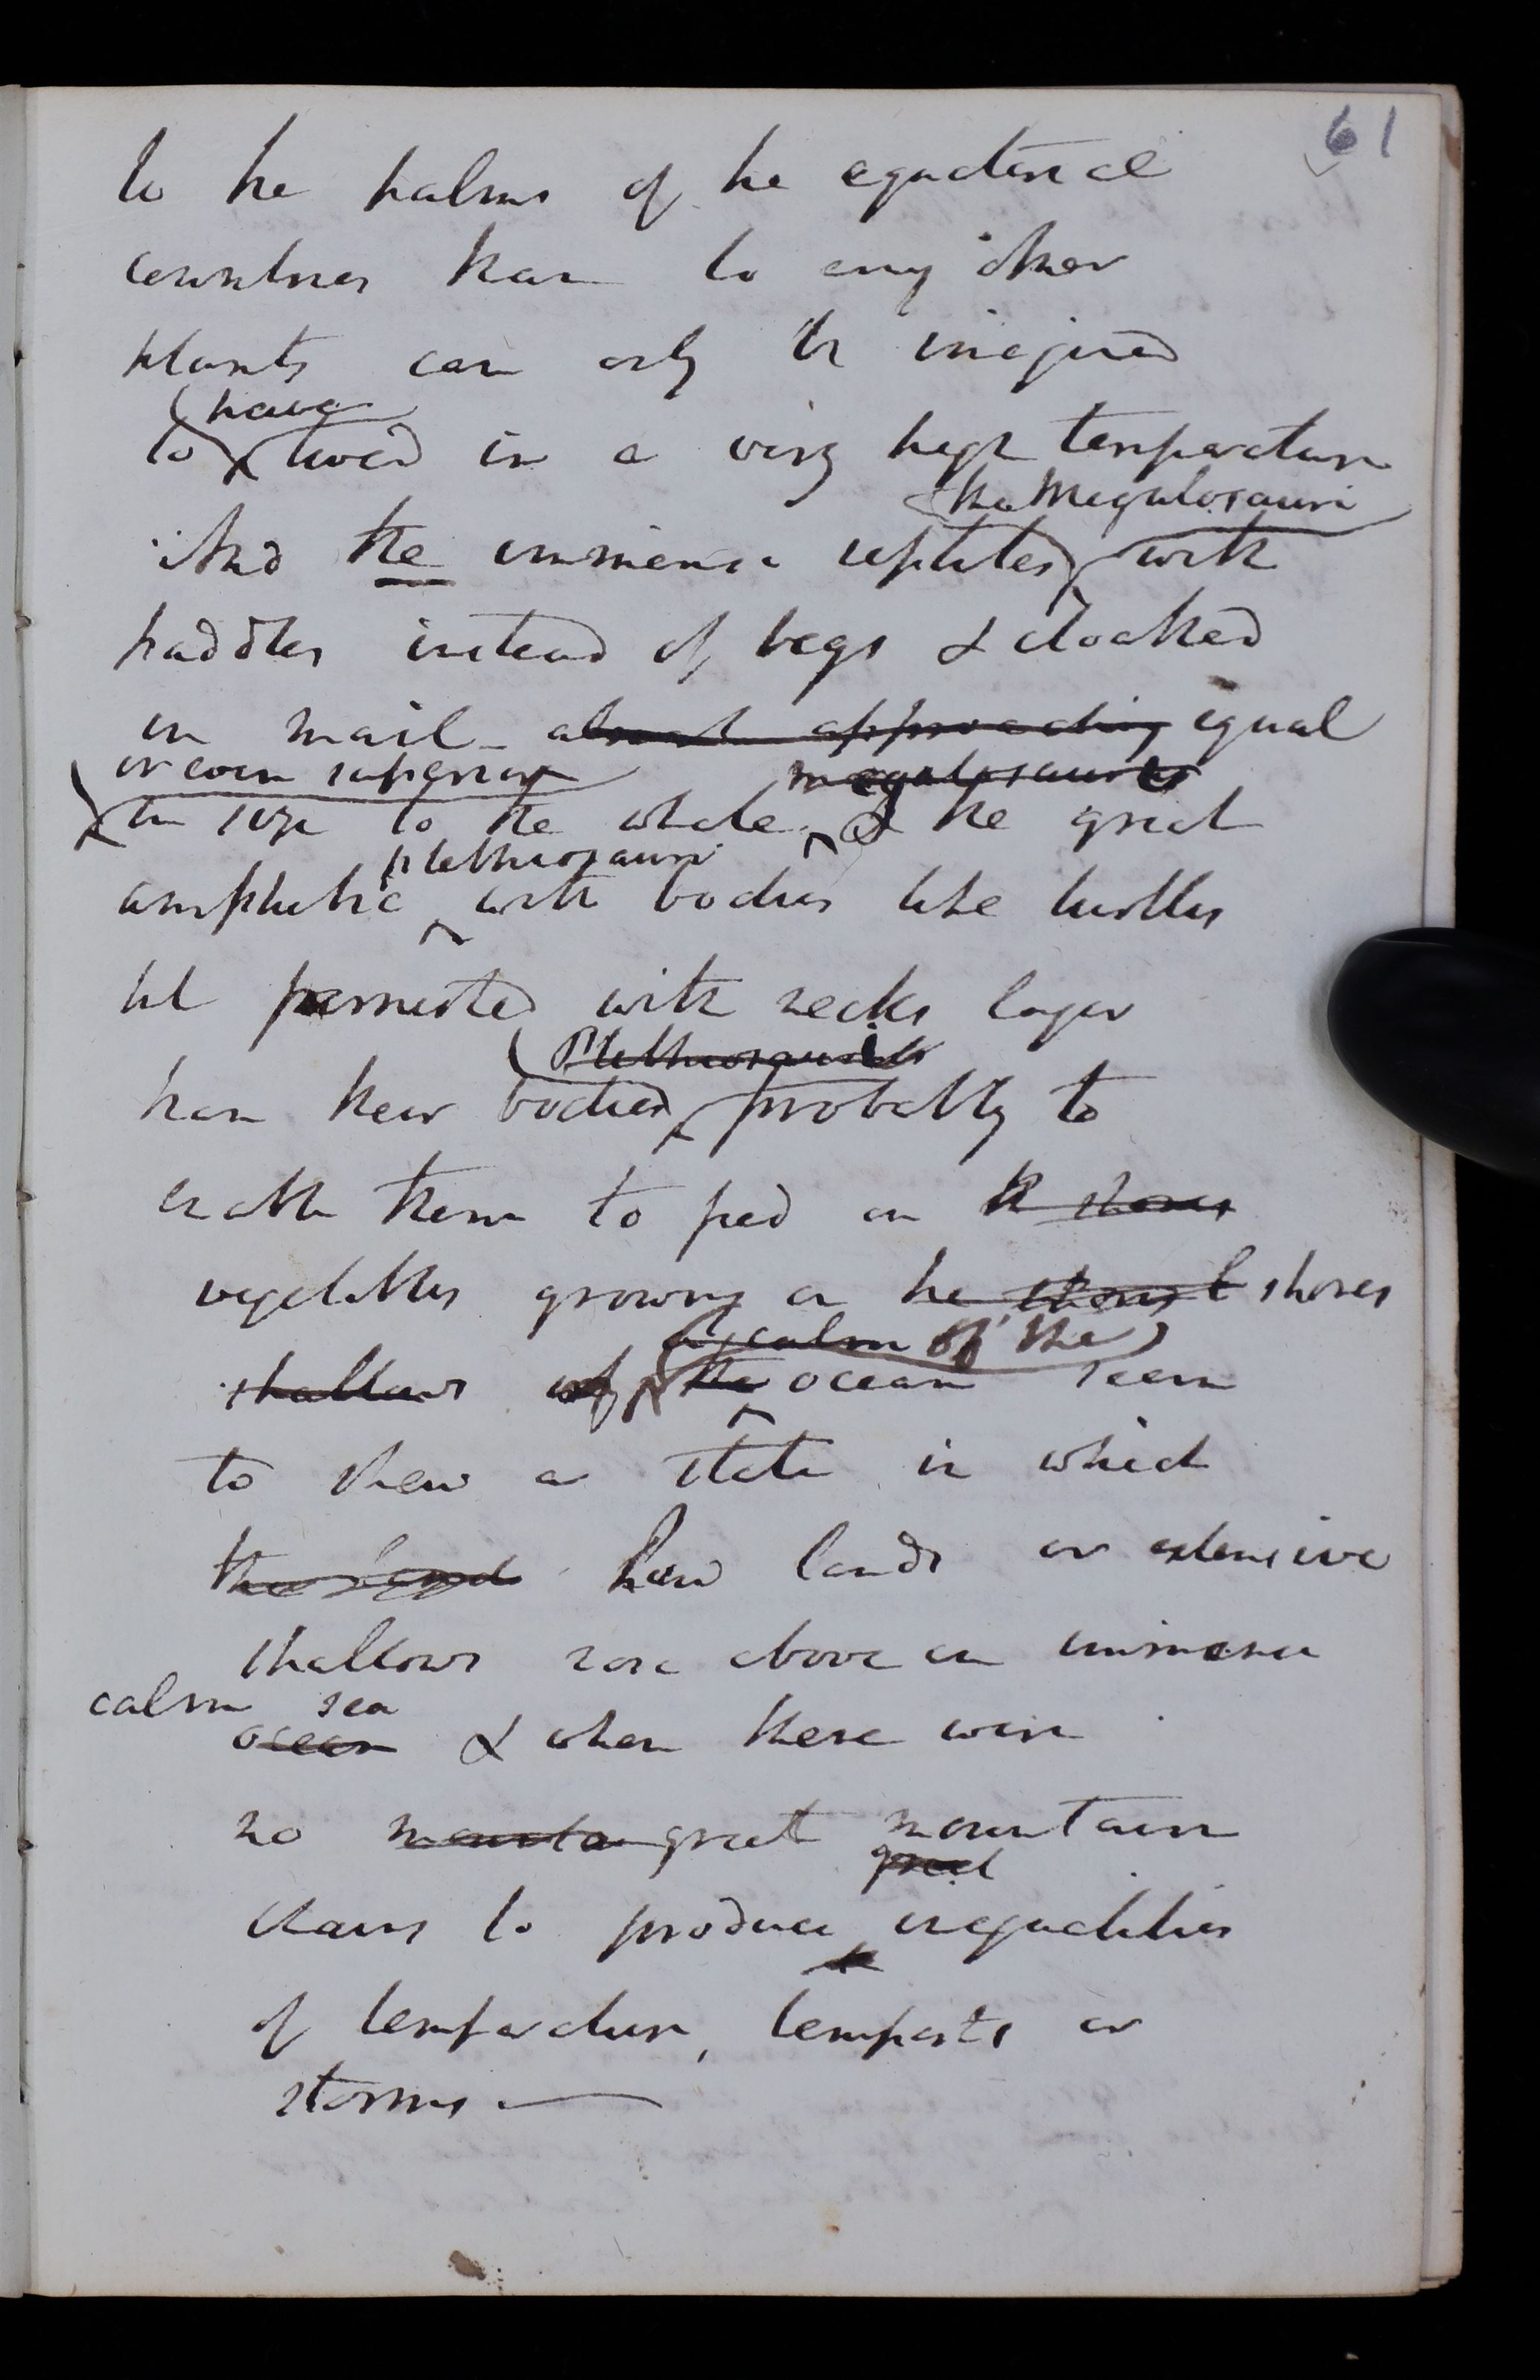 61
to the palms of the equatorial
countries than to any other
plants can only be imagined
have
to lived in a very high temperature
the Megalosauri
And the immense reptiles with
paddles instead of legs & cloathed
in mail almost approaching equal
or even superior megalosaurus
in size to the whale & the great
plethiosauri
amphibia with bodies like turtles
but furnished with necks longer
Plethiosauri
than their bodies probably to
enable them to feed on the shores
vegetables growing on the shores
a calm of the
shallows of the ocean seem
to shew a state in which
the land low lands or extensive
shallows rose above an immense
calm sea
ocean & when there were
no mounta great mountain
great
chains to produce inequalities
of temperature, tempests or
storms —